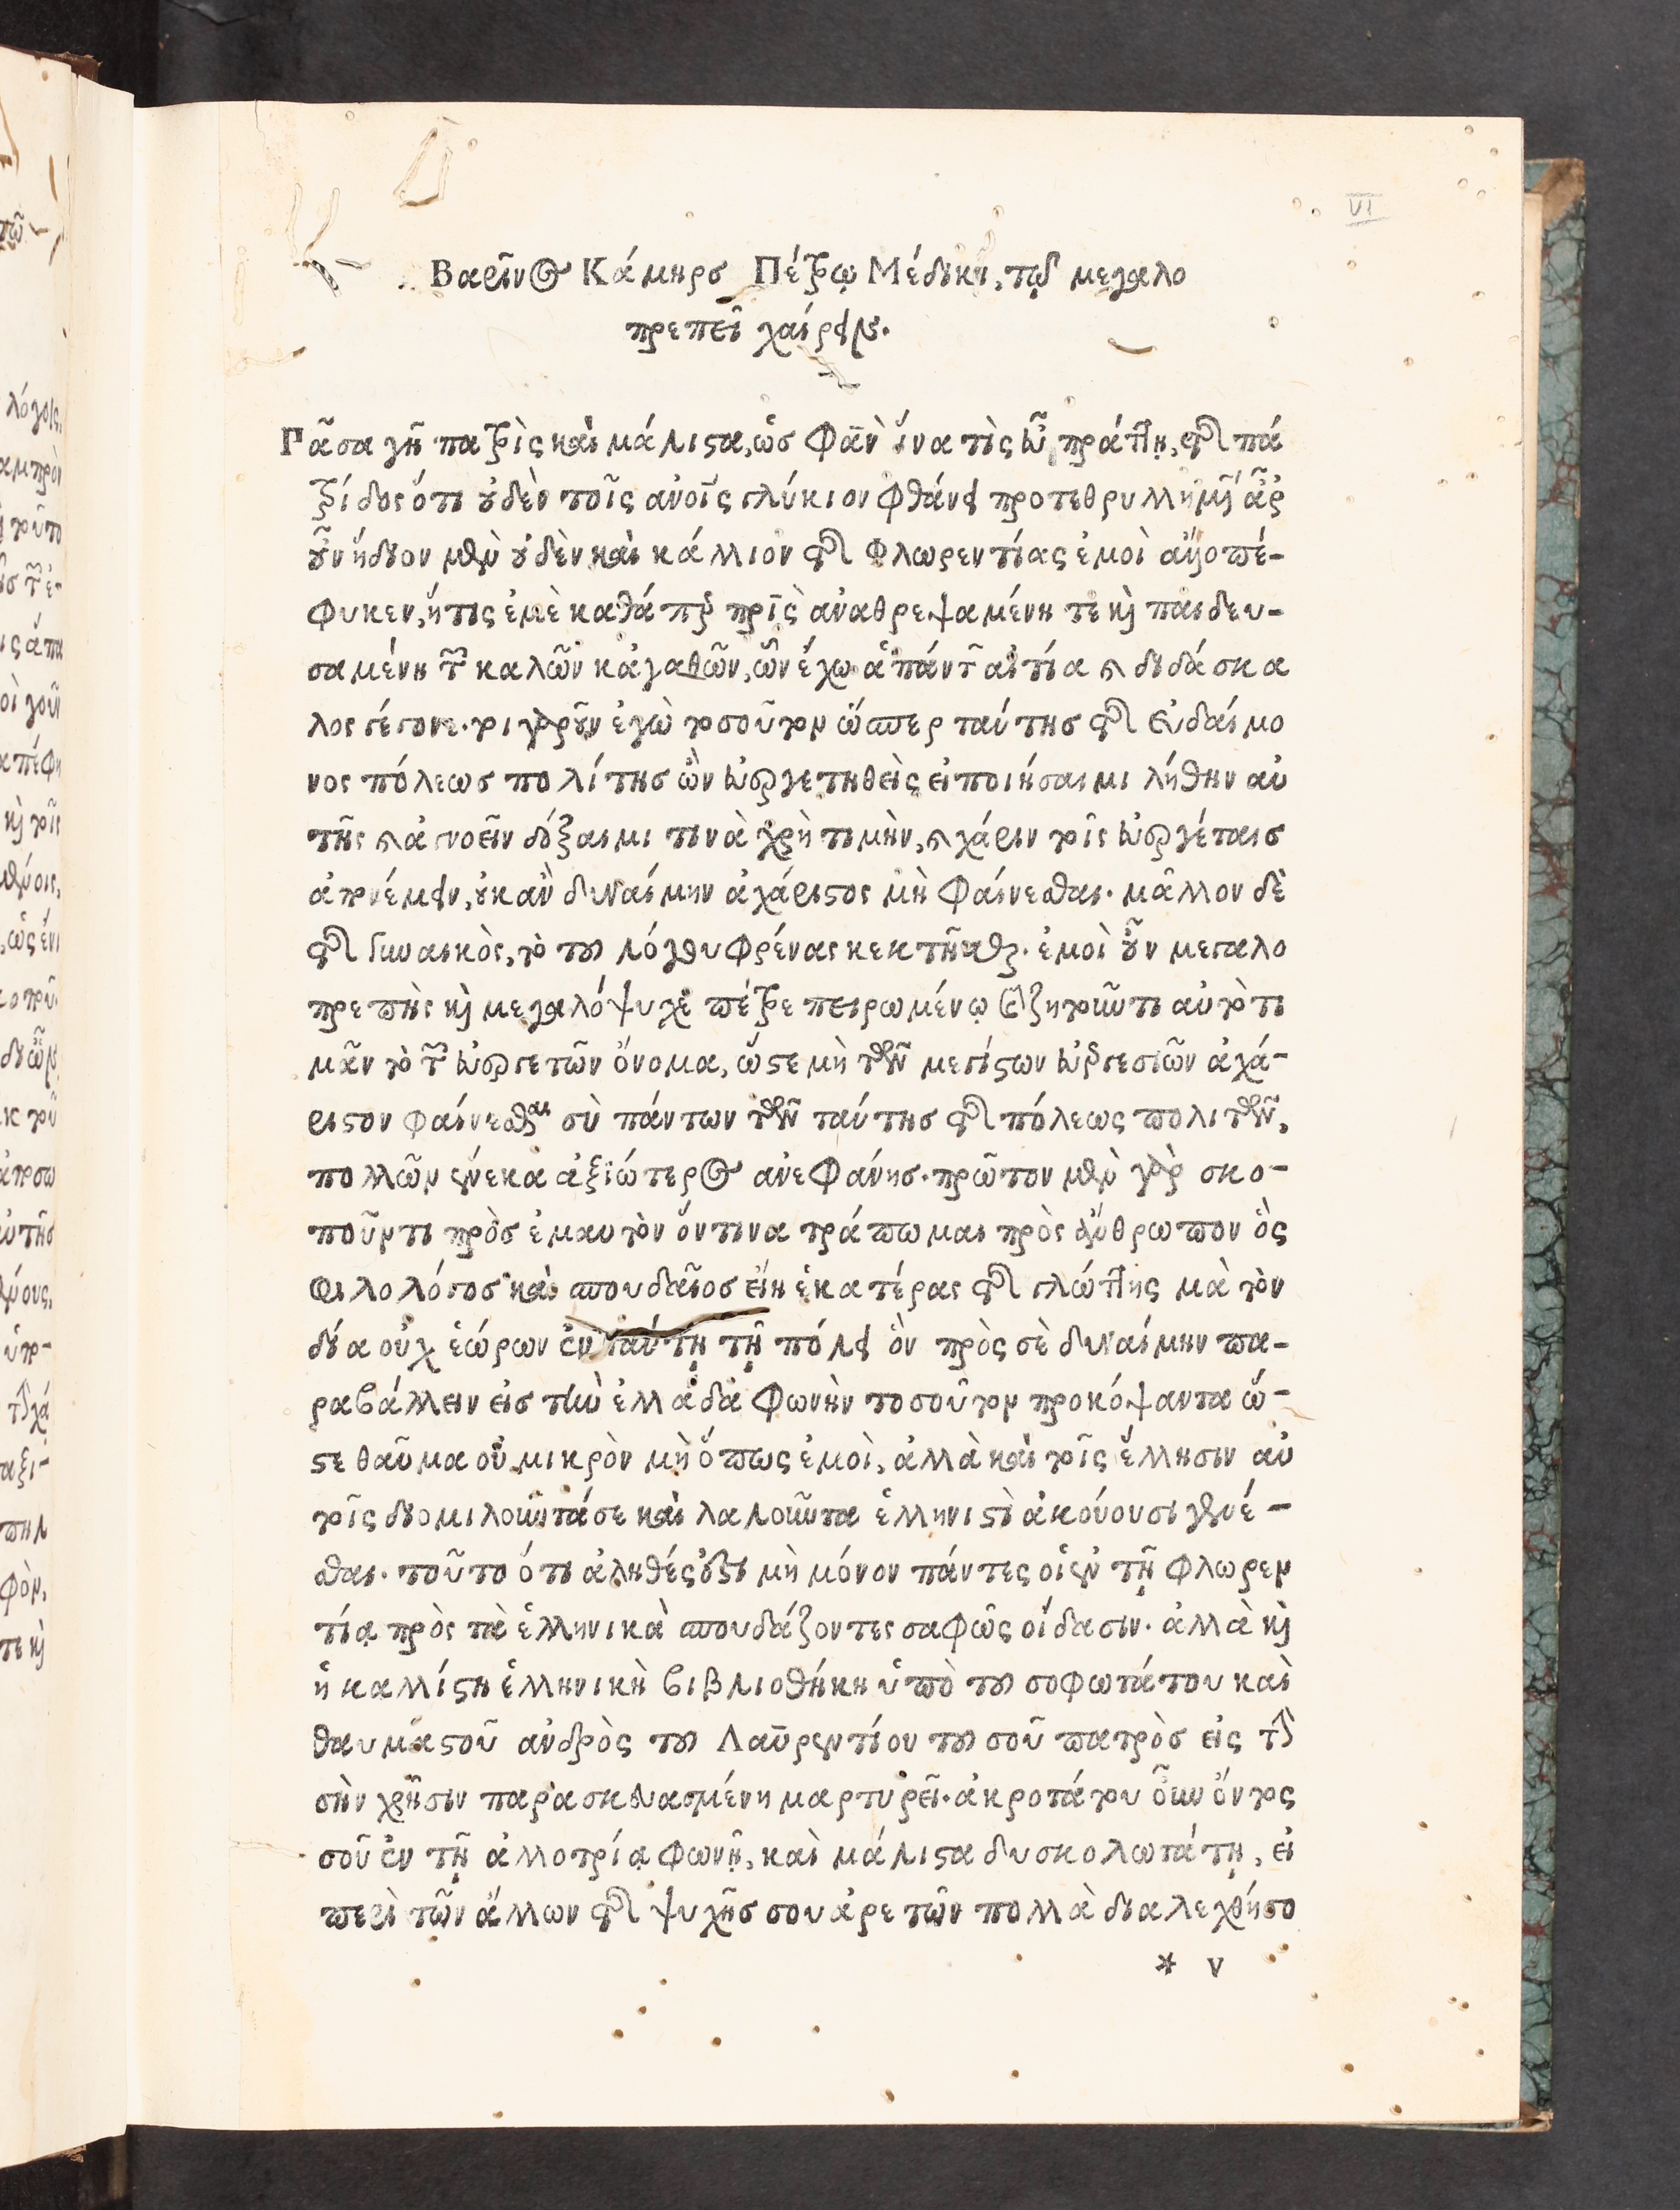 VI
Βαρῖνος Κάμηρς Πέτρῳ Μέδικῃ, τῷ μεγαλο
πρεπεῖ χαίρειν.
Πᾶσα γῆ πατρὶς καὶ μάλιστα, ὡς φᾶν ἵνα τὶς εὖ πράττῃ, τῆς πα
τρίδος ὅτι οὐδὲν τοῖς ἀνοῖς γλύκιον φθάνει προτεθρυλλημένον ἆρ
οὖν ἥδιον μὲν οὐδὲν καὶ κάλλιον τῆς Φλωρεντίας ἐμοὶ αὐτο πέ-
φυκεν, ἥτις ἐμὲ καθάπερ πρὶς ἀναθρεψαμένη τε καὶ παιδευ-
σαμένη τῶν καλῶν κἀγαθῶν, ὧν ἔχω ἁπάντων αἰτία καὶ διδάσκα
λος γέγονε. τοιγαροῦν ἐγὼ τοσοῦτον ὥσπερ ταύτης τῆς εὐδαίμο
νος πόλεως πολίτης ὢν εὐεργετηθεὶς εἰ ποιήσαιμι λήθην αὐ
τῆς καὶ ἀγνοεῖν δόξαιμι τινὰ χρὴ τιμὴν, καὶ χάριν τοῖς εὐεργέταις
ἀπονέμειν, οὐκ ἂν δυναίμην ἀχάριστος μὴ φαίνεσθαι. μᾶλλον δὲ
τῆς γυναικὸς, τὸ τοῦ λόγου φρένας κεκτῆσθαι. ἐμοὶ οὖν μεγαλο
πρεπὴς καὶ μεγαλόψυχε πέτρε πειρωμένῳ καὶ ζητοῦντι αὐτὸ τι
μᾶν τὸ τῶν εὐεργετῶν ὄνομα, ὥστε μὴ τῶν μεγίστων εὐεργεσιῶν ἀχά-
ριστον φαίνεσθαι σὺ πάντων τῶν ταύτης τῆς πόλεως πολιτῶν,
πολλῶν ἕνεκα ἀξιώτερος ἀνεφάνης. πρῶτον μὲν γὰρ σκο-
ποῦντι πρὸς ἐμαυτὸν ὅντινα τράπωμαι πρὸς ἄνθρωπον ὃς
φιλολόγος καὶ σπουδαῖος εἴη ἑκατέρας τῆς γλώττης μὰ τὸν
δία οὐχ ἑώρων ἐν ταύτῃ τῇ πόλει ὃν πρὸς σὲ δυναίμην πα-
ραβάλλειν εἰς τὴν ἑλλάδα φωνὴν τοσοῦτον προκόψαντα ὥ-
στε θαῦμα οὐ μικρὸν μὴ ὅπως ἐμοὶ, ἀλλὰ καὶ τοῖς ἕλλησιν αὐ
τοῖς διομιλοῦντά σε καὶ λαλοῦντα ἑλληνιστὶ ἀκούουσι γενέ-
σθαι. τοῦτο ὅτι ἀληθές ἐστι μὴ μόνον πάντες οἱ ἐν τῇ Φλωρεν
τίᾳ πρὸς τὰ ἑλληνικὰ σπουδάζοντες σαφῶς οἴδασιν. ἀλλὰ καὶ
ἡ καλλίστη ἑλληνικὴ βιβλιοθήκη ὑπὸ τοῦ σοφωτάτου καὶ
θαυμαστοῦ ἀνδρὸς τοῦ Λαῦρεντίου τοῦ σοῦ πατρὸς εἰς τὴν
σὴν χρῆσιν παρασκευασμένη μαρτυρεῖ. ἀκροτάτου οὖν ὄντος
σοῦ ἐν τῇ ἀλλοτρίᾳ φωνῇ, καὶ μάλιστα δυσκολωτάτῃ, εἰ
περὶ τῶν ἄλλων τῆς ψυχῆς σου ἀρετῶν πολλὰ διαλεχθήσο
* v